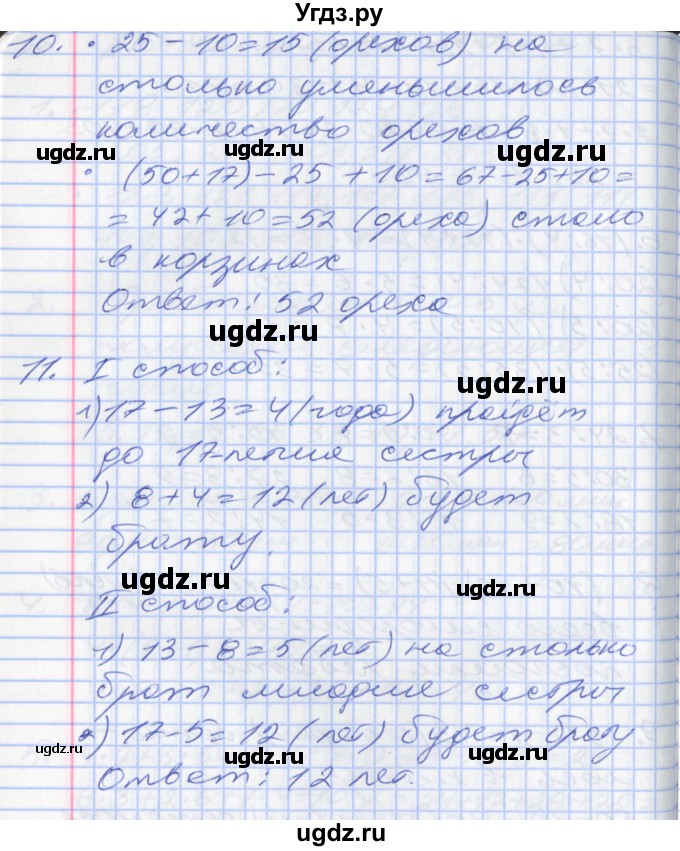 Угдз.ру
10. • 25 - 10 = 15 (орехов) на
столько уменьшилось
количество орехов
ugdz.ru ugdz.ru ugdz.ru
• (50+17) - 25 + 10 = 67-25+10 =
= 42 + 10 = 52 (ореха) стало
в корзинах
Ответ: 52 ореха
ugdz.ru
11. I способ:
ugdz.ru
1) 17 - 13 = 4 (года) пройдёт
до 17-летия сестры
ugdz.ru ugdz.ru
2) 8 + 4 = 12 (лет) будет
брату.
ugdz.ru ugdz.ru
II способ:
1) 13 - 8 = 5 (лет) на столько
брат младше сестры
2) 17-5 = 12 (лет) будет брату
ugdz.ru ugdz.ru ugdz.ru
Ответ: 12 лет.
ugdz.ru